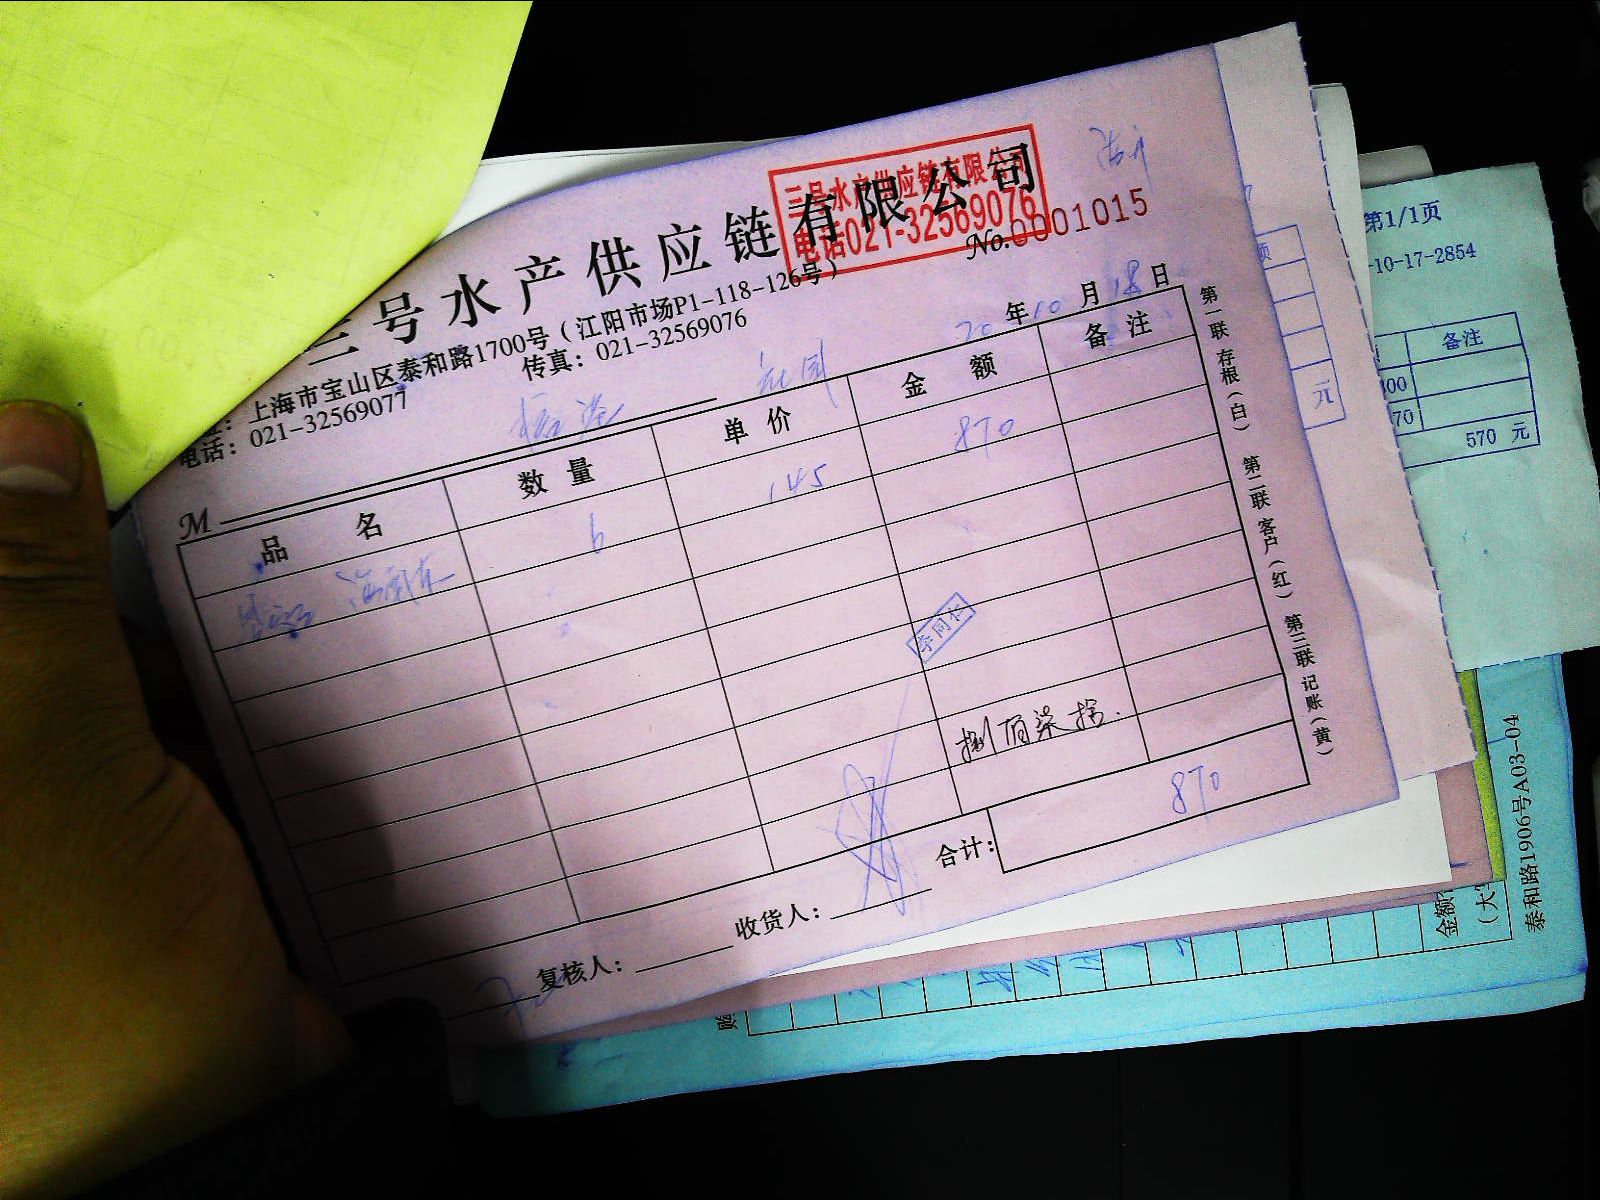 三号水产供应链有限公司
三号水产供应链有限公司
电话021-32569076
No.0001015
址：上海市宝山区泰和路1700号（江阳市场P1-118-126号）
电话：021-32569077 传真：021-32569076
20年10月18日
M
品名 数量 单价 金额 备注
6 145 870
李同仁
捌佰柒拾.
合计： 870
复核人： 收货人：
第一联 存根（白） 第二联 客户（红） 第三联 记账（黄）
第1/1页
-10-17-2854
备注
00
70
570 元
元
金额
（大
泰和路1906号A03-04